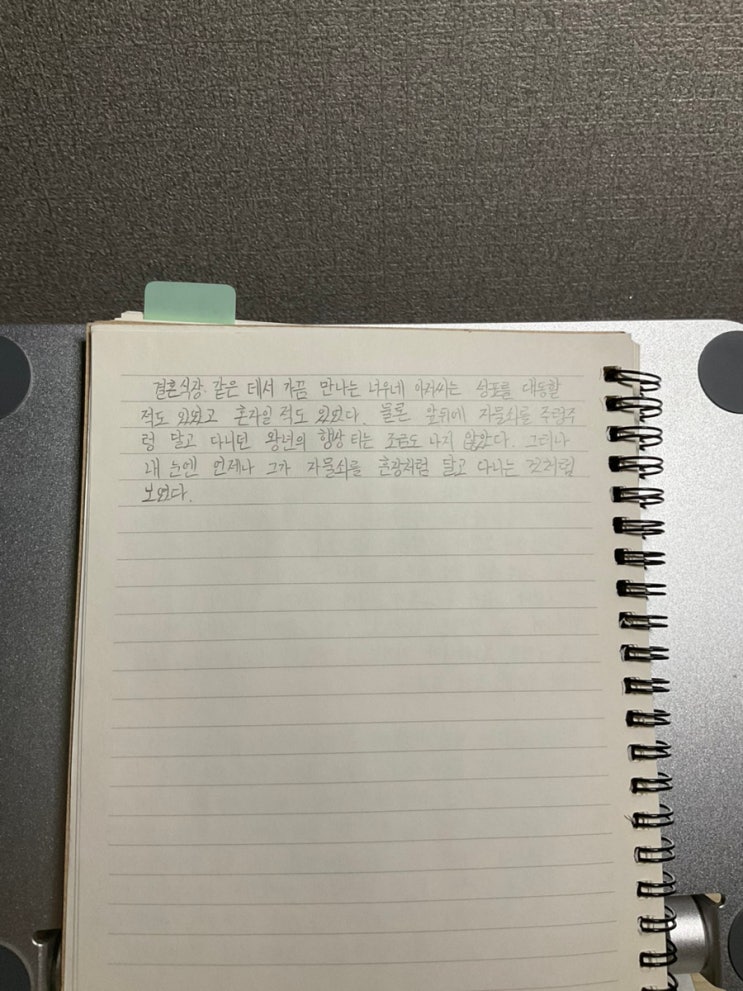 결혼식장 같은 데서 가끔 만나는 너우네 아저씨는 성표를 대동할
적도 있었고 혼자일 적도 있었다. 물론 앞뒤에 자물쇠를 주렁주
렁 달고 다니던 왕년의 행상 티는 조금도 나지 않았다. 그러나
내 눈엔 언제나 그가 자물쇠를 훈장처럼 달고 다니는 것처럼
보였다.